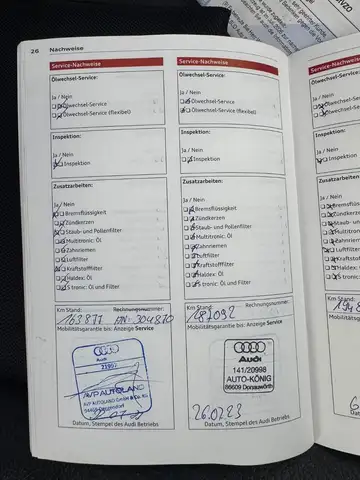 26 Nachweise
Service-Nachweise
Ölwechsel-Service:
Ja / Nein
Ölwechsel-Service
Ölwechsel-Service (flexibel)
Inspektion:
Ja / Nein
Inspektion
Zusatzarbeiten:
Ja / Nein
Bremsflüssigkeit
Zündkerzen
Staub- und Pollenfilter
Multitronic: Öl
Zahnriemen
Luftfilter
Kraftstofffilter
Haldex: Öl
S tronic: Öl und Filter
Km Stand: Rechnungsnummer:
163877
304870
Mobilitätsgarantie bis: Anzeige Service
Audi
AVP AUTOLAND
AVP AUTOLAND GmbH & Co. KG
Datum, Stempel des Audi Betriebs
Service-Nachweise
Ölwechsel-Service:
Ja / Nein
Ölwechsel-Service
Ölwechsel-Service (flexibel)
Inspektion:
Ja / Nein
Inspektion
Zusatzarbeiten:
Ja / Nein
Bremsflüssigkeit
Zündkerzen
Staub- und Pollenfilter
Multitronic: Öl
Zahnriemen
Luftfilter
Kraftstofffilter
Haldex: Öl
S tronic: Öl und Filter
Km Stand: Rechnungsnummer:
181092
Mobilitätsgarantie bis: Anzeige Service
Audi
141/20998
AUTO-KÖNIG
86609 Donauwörth
26.02.23
Datum, Stempel des Audi Betriebs
Service-Nachweise
Ölwechsel-Service:
Ja / Nein
Inspektion:
Ja / Nein
Inspektion
Zusatzarbeiten:
Ja / Nein
Km Stand:
Mobilitätsgarantie